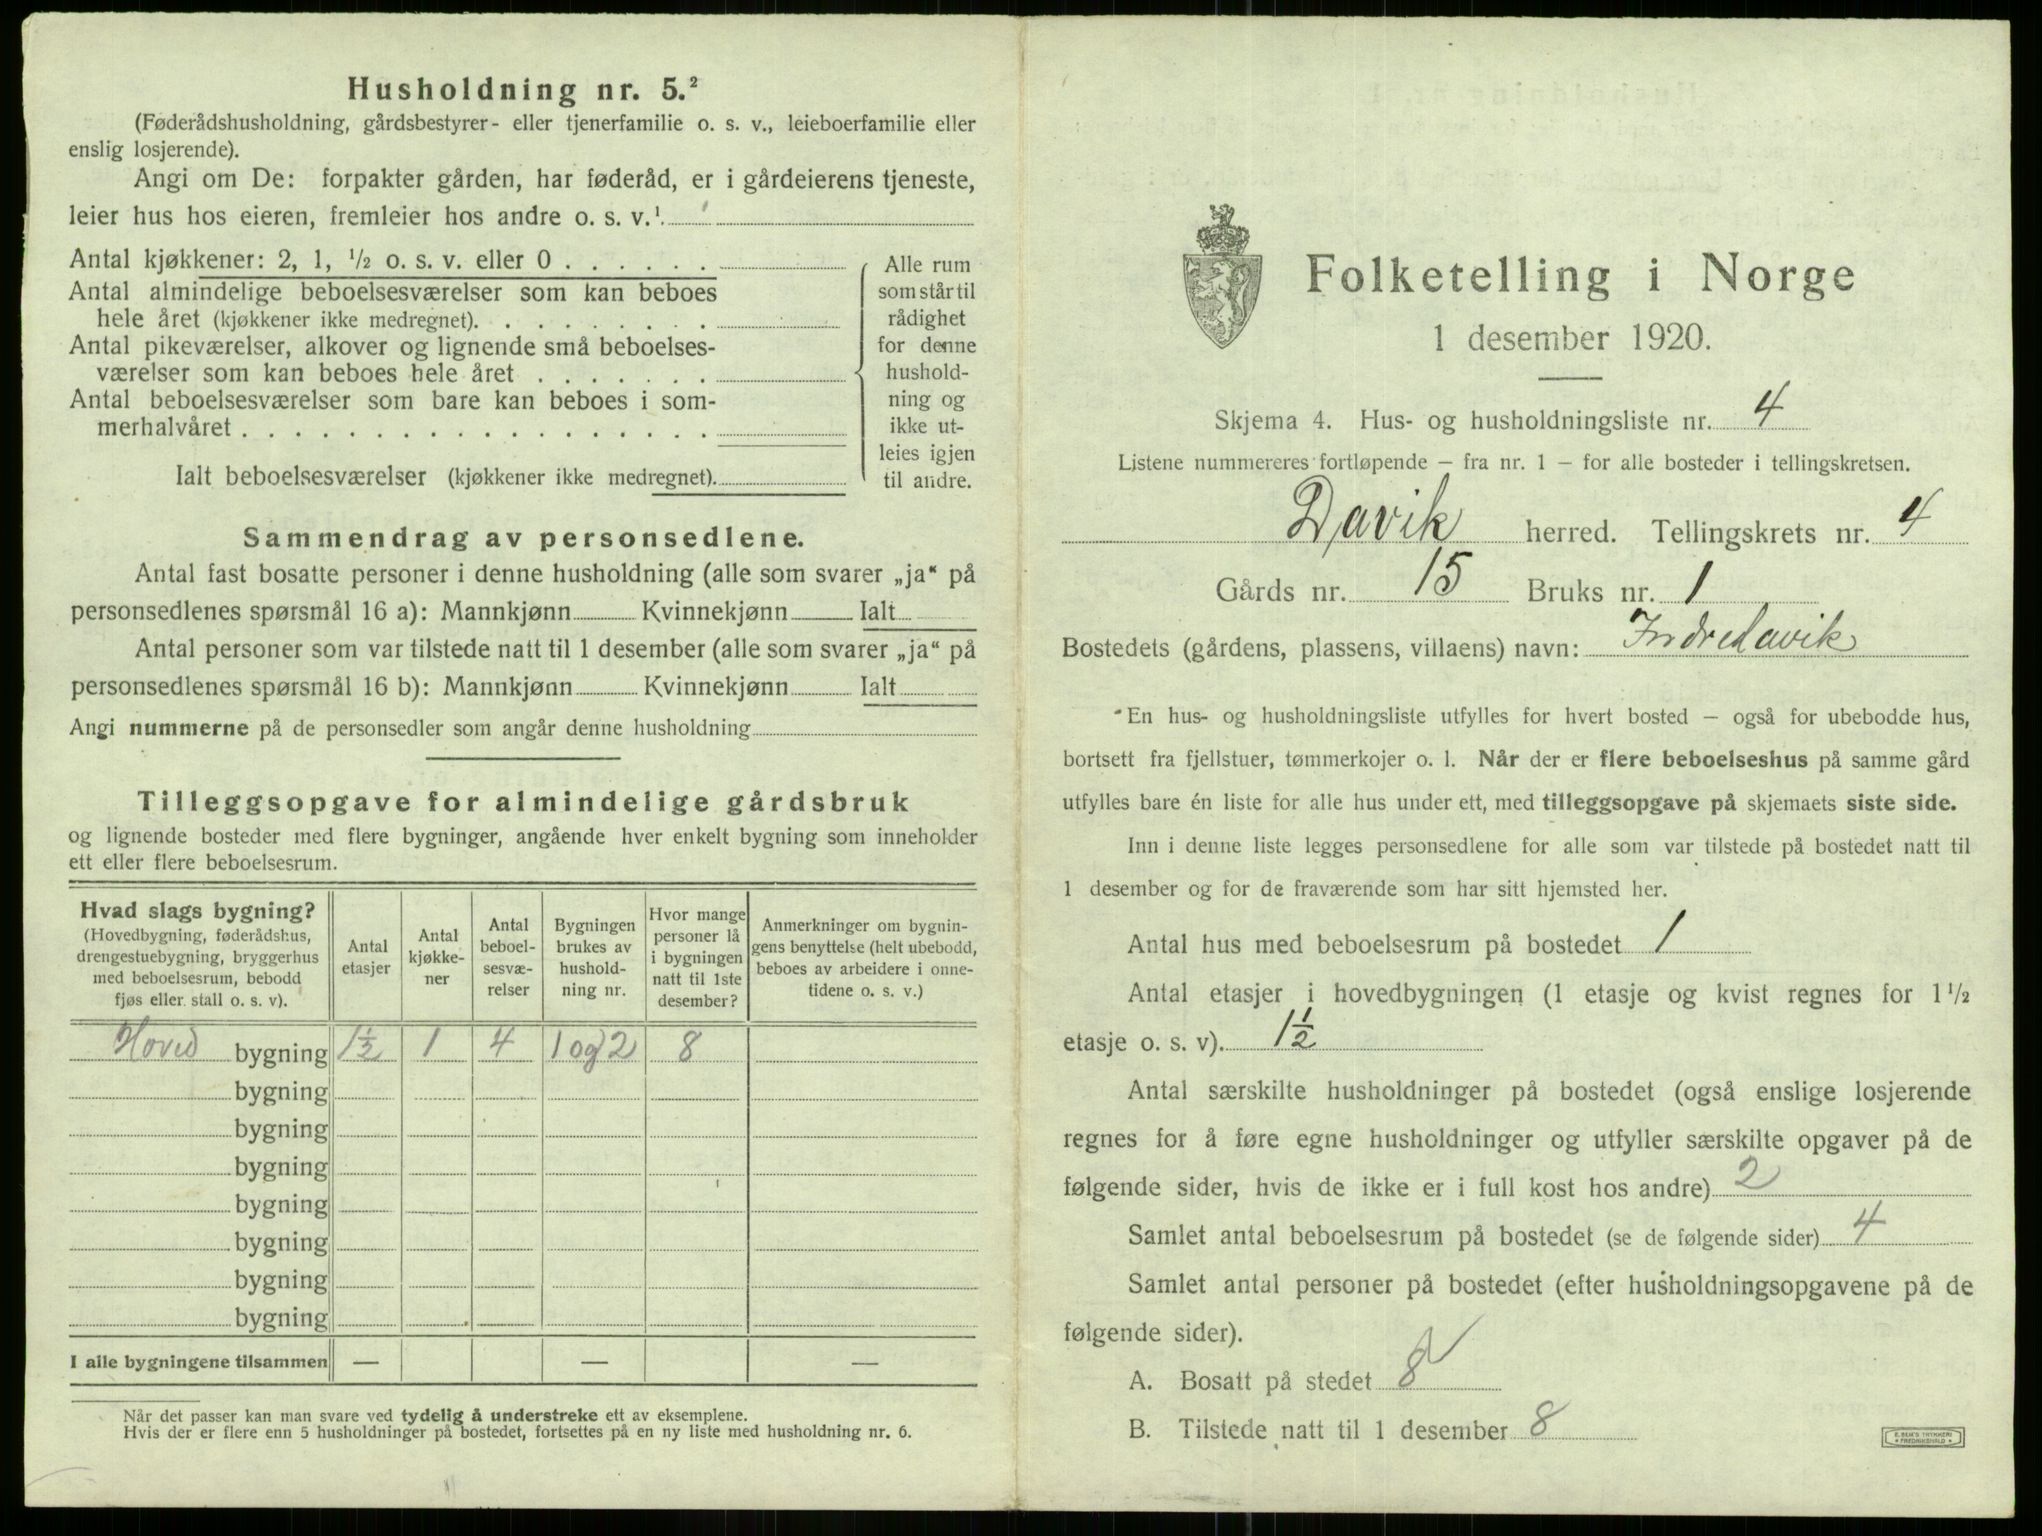 Husholdning nr. 5.²
(Føderådshusholdning, gårdsbestyrer- eller tjenerfamilie o. s. v., leieboerfamilie eller
enslig losjerende).
Angi om De: forpakter gården, har føderåd, er i gårdeierens tjeneste,
leier hus hos eieren, fremleier hos andre o. s. v.¹
Antal kjøkkener: 2, 1, ½ o. s. v. eller 0 . . . . . .
Antal almindelige beboelsesværelser som kan beboes
hele året (kjøkkener ikke medregnet). . . . . . . . .
Antal pikeværelser, alkover og lignende små beboelses-
værelser som kan beboes hele året . . . . . . .
Antal beboelsesværelser som bare kan beboes i som-
merhalvåret . . . . . . . . . . . . . . . . . .
Ialt beboelsesværelser (kjøkkener ikke medregnet).
Alle rum
som står til
rådighet
for denne
hushold-
ning og
ikke ut-
leies igjen
til andre.
Sammendrag av personsedlene.
Antal fast bosatte personer i denne husholdning (alle som svarer „ja“ på
personsedlenes spørsmål 16 a): Mannkjønn Kvinnekjønn Ialt
Antal personer som var tilstede natt til 1 desember (alle som svarer „ja“ på
personsedlenes spørsmål 16 b): Mannkjønn Kvinnekjønn Ialt
Angi nummerne på de personsedler som angår denne husholdning
Tilleggsopgave for almindelige gårdsbruk
og lignende bosteder med flere bygninger, angående hver enkelt bygning som inneholder
ett eller flere beboelsesrum.
Hvad slags bygning?
(Hovedbygning, føderådshus,
drengestuebygning, bryggerhus
med beboelsesrum, bebodd
fjøs eller stall o. s. v).
Antal
etasjer
Antal
kjøkke-
ner
Antal
beboel-
sesvæ-
relser
Bygningen
brukes av
hushold-
ning nr.
Hvor mange
personer lå
i bygningen
natt til 1ste
desember?
Anmerkninger om bygnin-
gens benyttelse (helt ubebodd,
beboes av arbeidere i onne-
tidene o. s. v.)
Hoved bygning 1½ 1 4 1 og 2 8
bygning
bygning
bygning
bygning
bygning
bygning
bygning
I alle bygningene tilsammen — — —
Når det passer kan man svare ved tydelig å understreke ett av eksemplene.
Hvis der er flere enn 5 husholdninger på bostedet, fortsettes på en ny liste med husholdning nr. 6.
Folketelling i Norge
1 desember 1920.
Skjema 4. Hus- og husholdningsliste nr. 4
Listene nummereres fortløpende — fra nr. 1 — for alle bosteder i tellingskretsen.
Davik herred. Tellingskrets nr. 4
Gårds nr. 15 Bruks nr. 1
Bostedets (gårdens, plassens, villaens) navn: Indredavik
En hus- og husholdningsliste utfylles for hvert bosted — også for ubebodde hus,
bortsett fra fjellstuer, tømmerkojer o. l. Når der er flere beboelseshus på samme gård
utfylles bare én liste for alle hus under ett, med tilleggsopgave på skjemaets siste side.
Inn i denne liste legges personsedlene for alle som var tilstede på bostedet natt til
1 desember og for de fraværende som har sitt hjemsted her.
Antal hus med beboelsesrum på bostedet 1
Antal etasjer i hovedbygningen (1 etasje og kvist regnes for 1½
etasje o. s. v). 1½
Antal særskilte husholdninger på bostedet (også enslige losjerende
regnes for å føre egne husholdninger og utfyller særskilte opgaver på de
følgende sider, hvis de ikke er i full kost hos andre) 2
Samlet antal beboelsesrum på bostedet (se de følgende sider) 4
Samlet antal personer på bostedet (efter husholdningsopgavene på de
følgende sider).
A. Bosatt på stedet 8
B. Tilstede natt til 1 desember 8
E. SEM'S TRYKKERI
FREDRIKSHALD